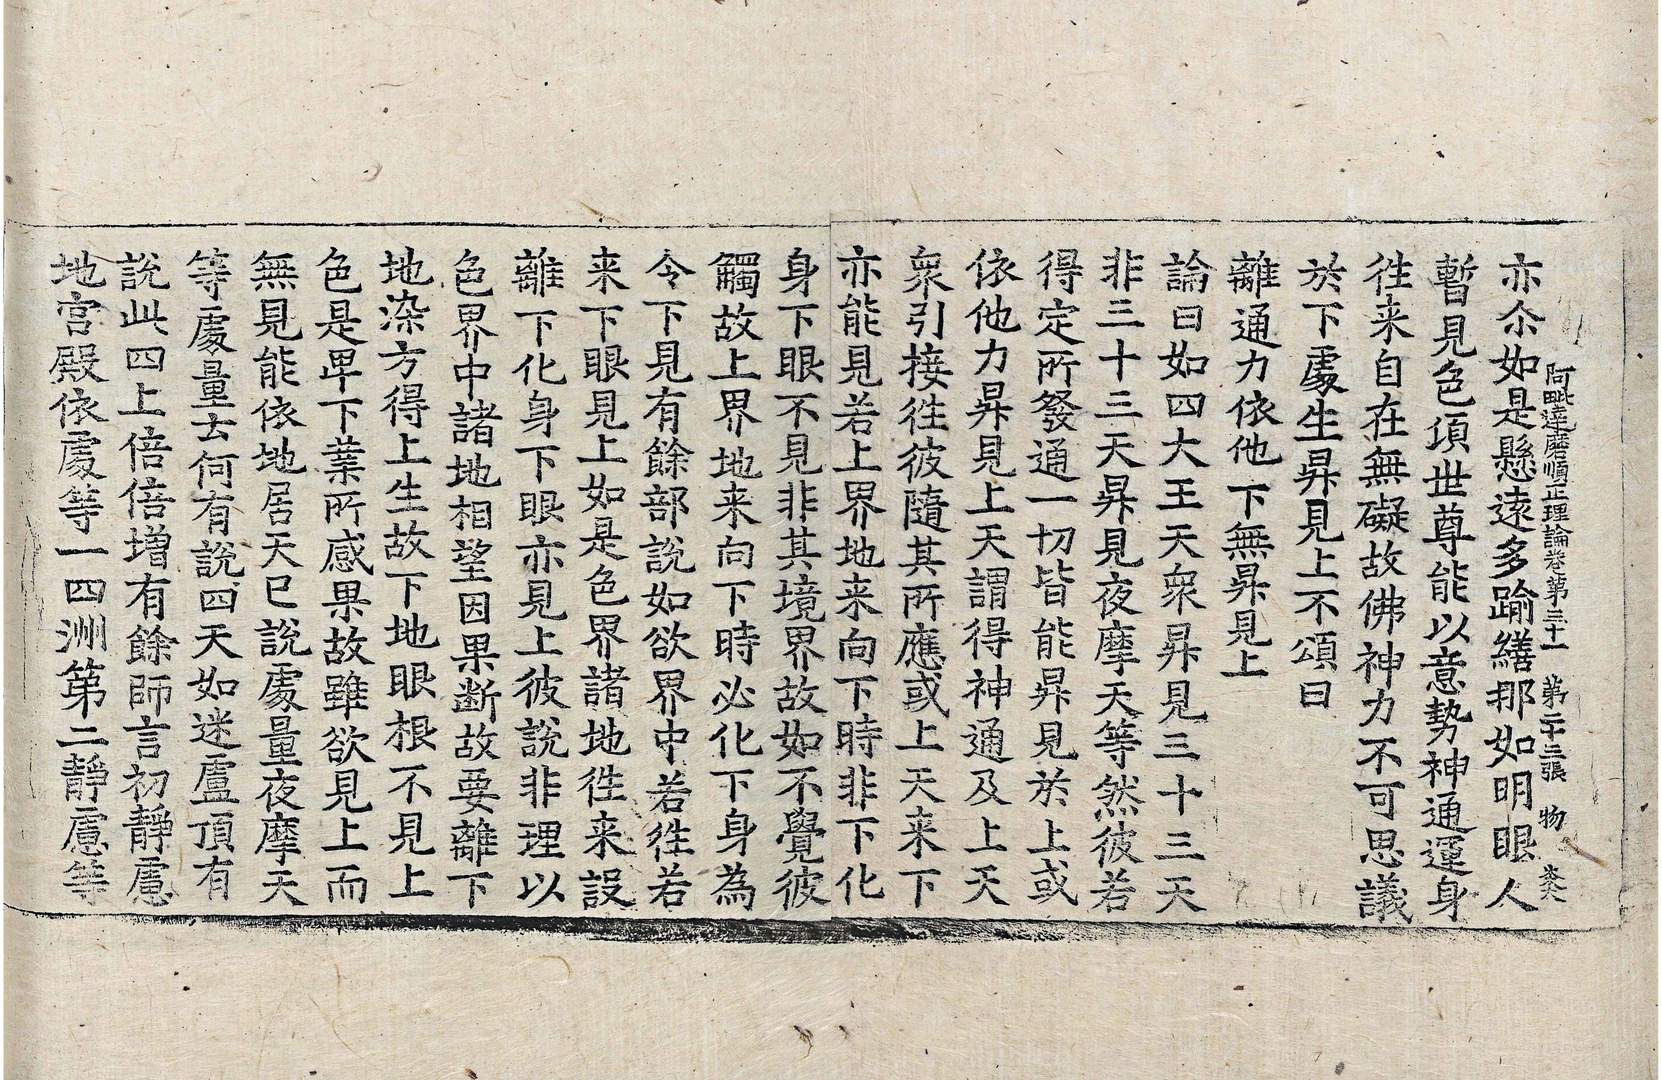 阿毗達磨順正理論卷第三十一 第二十三張 物
亦尒如是懸遠多踰繕那如明眼人
暫見色頂世尊能以意勢神通運身
往来自在無礙故佛神力不可思議
於下處生昇見上不頌曰
離通力依他下無昇見上
論曰如四大王天衆昇見三十三天
非三十三天昇見夜摩天等然彼若
得定所發通一切皆能昇見於上或
依他力昇見上天謂得神通及上天
衆引接往彼隨其所應或上天来下
亦能見若上界地来向下時非下化
身下眼不見非其境界故如不覺彼
觸故上界地来向下時必化下身為
令下見有餘部說如欲界中若往若
来下眼見上如是色界諸地往来設
離下化身下眼亦見上彼說非理以
色界中諸地相望因果断故要離下
地染方得上生故下地眼根不見上
色是卑下業所感果故雖欲見上而
無見能依地居天已說處量夜摩天
等處量去何有說四天如迷盧頂有
說此四上倍倍增有餘師言初靜慮
地宮殿依處等一四洲第二靜慮等